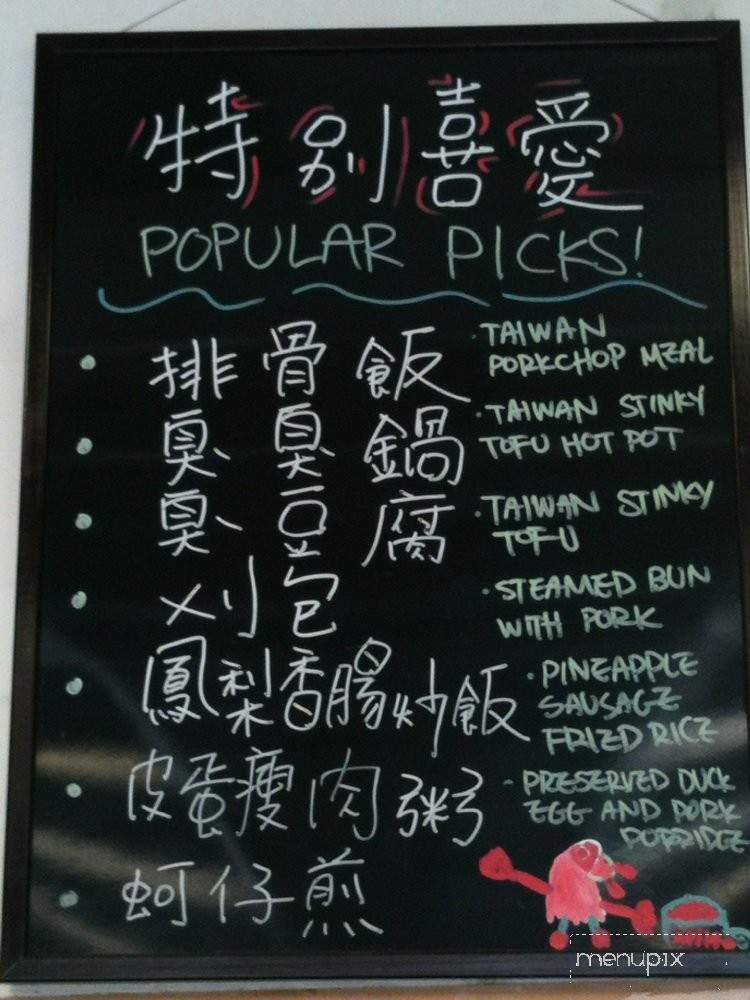 特別喜愛
POPULAR PICKS!
排骨飯
· TAIWAN
PORKCHOP MEAL
臭臭鍋
· TAIWAN STINKY
TOFU HOT POT
臭豆腐
· TAIWAN STINKY
TOFU
刈包
· STEAMED BUN
WITH PORK
鳳梨香腸炒飯
· PINEAPPLE
SAUSAGE
FRIED RICE
皮蛋瘦肉粥
- PRESERVED DUCK
EGG AND PORK
PORRIDGE
蚵仔煎
menupix